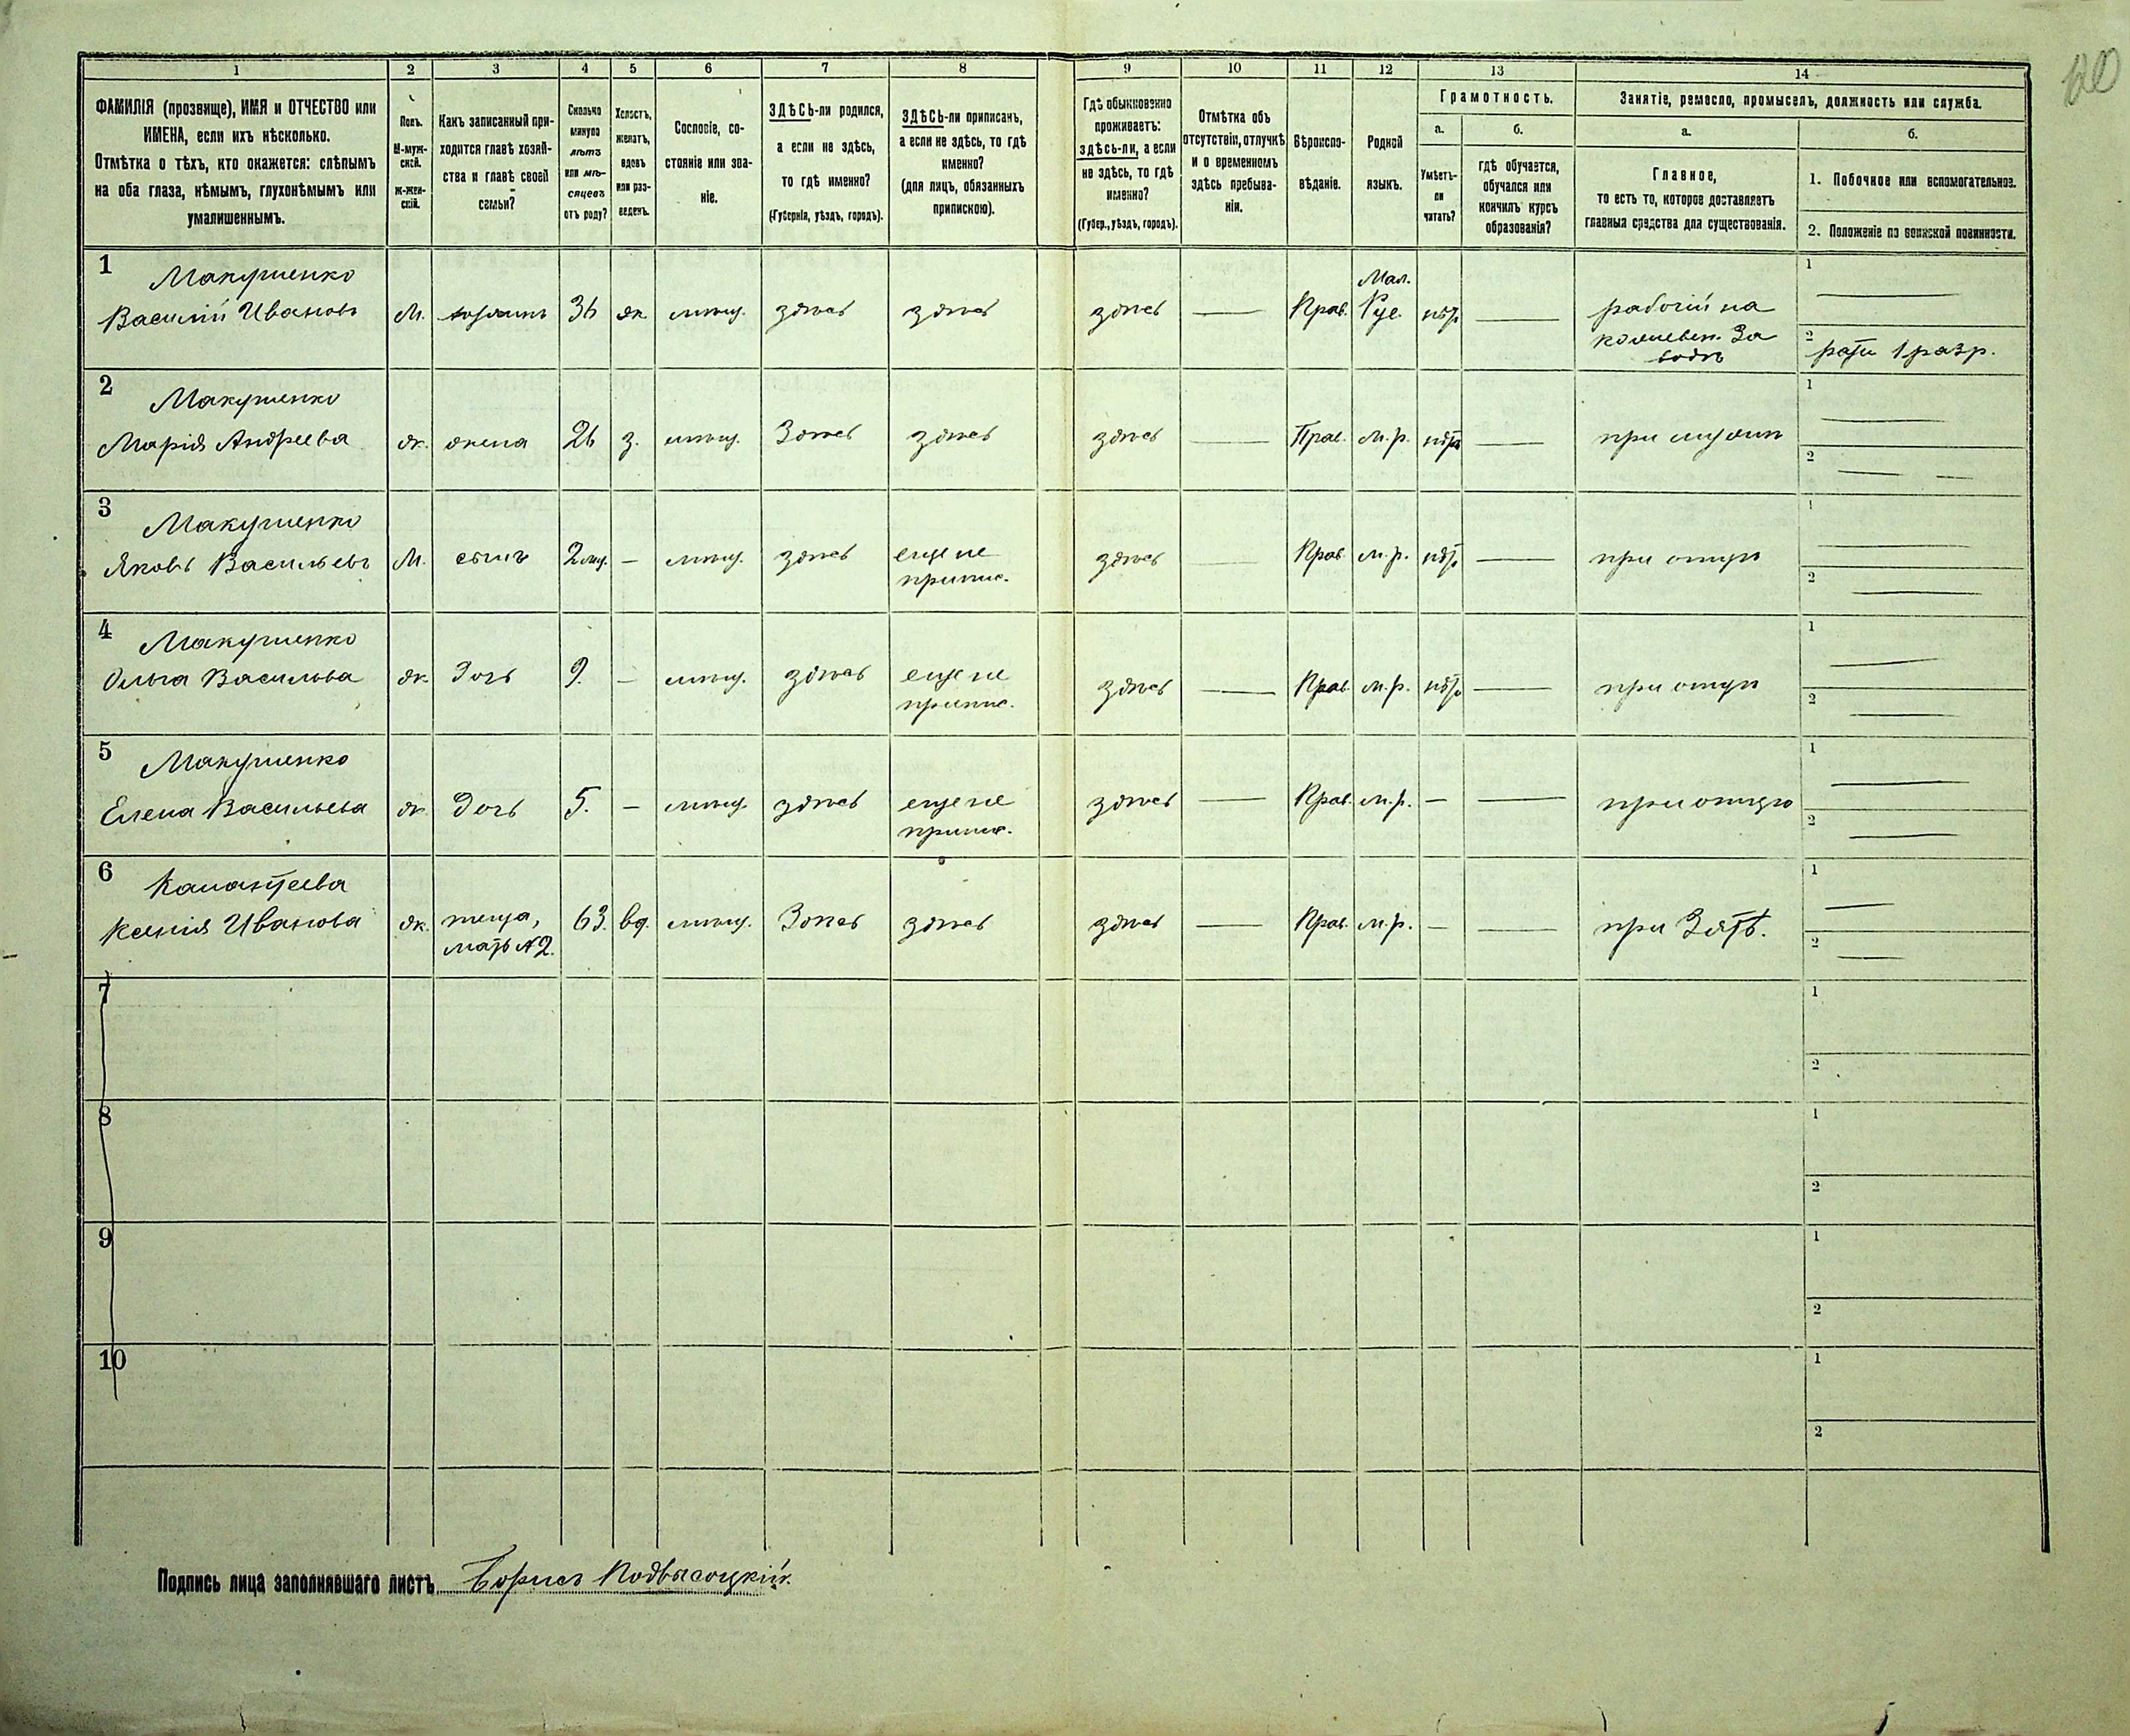 120
1 2 3 4 5 6 7 8 9 10 11 12 13 14
ФАМИЛІЯ (прозвище), ИМЯ и ОТЧЕСТВО или
ИМЕНА, если ихъ нѣсколько.
Отмѣтка о тѣхъ, кто окажется: слѣпымъ
на оба глаза, нѣмымъ, глухонѣмымъ или
умалишеннымъ.
Полъ.
М-муж-
ской.
Ж-жен-
скій.
Какъ записанный при-
ходится главѣ хозяй-
ства и главѣ своей
семьи?
Сколько
минуло
лѣтъ
или мѣ-
сяцевъ
отъ роду?
Холостъ,
женатъ,
вдовъ
или раз-
веденъ.
Сословіе, со-
стояніе или зва-
ніе.
ЗДѢСЬ-ли родился,
а если не здѣсь,
то гдѣ именно?
(Губернія, уѣздъ, городъ).
ЗДѢСЬ-ли приписанъ,
а если не здѣсь, то гдѣ
именно?
(для лицъ, обязанныхъ
припискою).
Гдѣ обыкновенно
проживаетъ:
здѣсь-ли, а если
не здѣсь, то гдѣ
именно?
(Губер., уѣздъ, городъ).
Отмѣтка объ
отсутствіи, отлучкѣ
и о временномъ
здѣсь пребыва-
ніи.
Вѣроиспо-
вѣданіе.
Родной
языкъ.
Грамотность.
а. б.
Умѣетъ-
ли
читать?
гдѣ обучается,
обучался или
кончилъ курсъ
образованія?
Занятіе, ремесло, промыселъ, должность или служба.
а. б.
Главное,
то есть то, которое доставляетъ
главныя средства для существованія.
1. Побочное или вспомогательное.
2. Положеніе по воинской повинности.
1 Макушенко
Василій Ивановъ М. хозяинъ 36 ж. мѣщ. здѣсь здѣсь здѣсь — Прав. Мал. Рус. нѣтъ — рабочій на
кожевен. За
водѣ
1 —
2 рат. 1 разр.
2 Макушенко
Марія Андреева ж. жена 26 з. мѣщ. Здѣсь здѣсь здѣсь — Прав. м.р. нѣтъ — при мужѣ
1 —
2 — —
3 Макушенко
Яковъ Васильевъ М. сынъ 2 — мѣщ. здѣсь еще не
припис. здѣсь — Прав. м.р. нѣтъ — при отцѣ
1 —
2 —
4 Макушенко
Ольга Васильева ж. Дочь 9. — мѣщ. здѣсь еще не
припис. здѣсь — Прав. м.р. нѣтъ — при отцѣ
1 —
2 —
5 Макушенко
Елена Васильева ж. Дочь 5. — мѣщ. здѣсь еще не
припис. здѣсь — Прав. м.р. — — при отцѣ
1 —
2 —
6
Ксенія Иванова ж. теща,
мать №2. 63. вд. мѣщ. Здѣсь здѣсь здѣсь — Прав. м.р. — — при Зятѣ.
1 —
2 —
7
1
2
8
1
2
9
1
2
10
1
2
Подпись лица заполнявшаго листъ Борисъ Подвысоцкій.